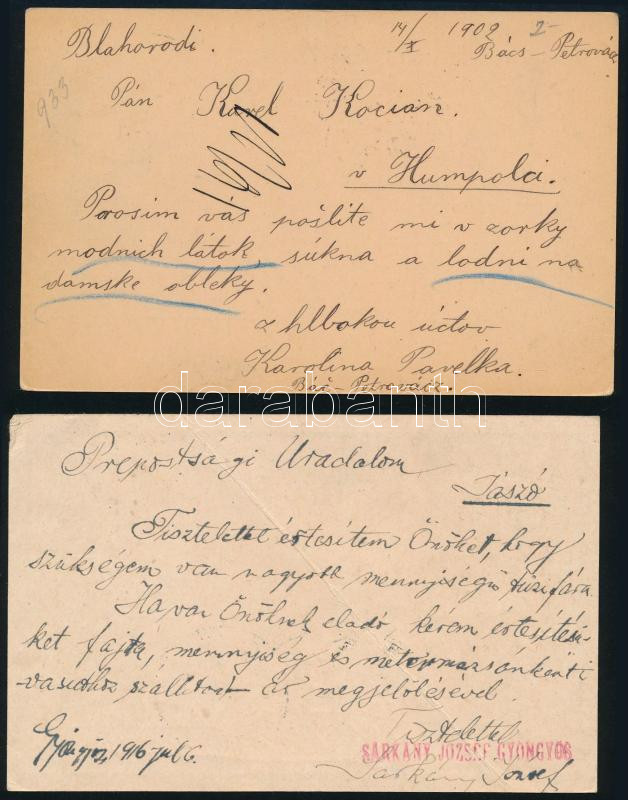 14/X 1902 2-
Blahorodi. Bács-Petrovácz
933
Pán Karel Kocian.
v Humpolci.
Prosim vás pošlite mi vzorky
modnich látok, súkna a lodni na
damske obleky.
z hlbokou úctov
Karolina Pavelka.
Báč-Petrovácz.
darabanth
Prepostsági Uradalom
Jászó
Tisztelettel értesitem Önöket, hogy
szükségem van nagyobb mennyiségü tüzifára
Ha van Önöknek eladó kérem értesitésü-
ket fajta, mennyiség és métermázsánkénti
vasuthoz szállitott ár megjelölésével.
Gyöngyös, 1916 jul 6. Tisztelettel
SÁRKÁNY JÓZSEF GYÖNGYÖS
Sárkány József